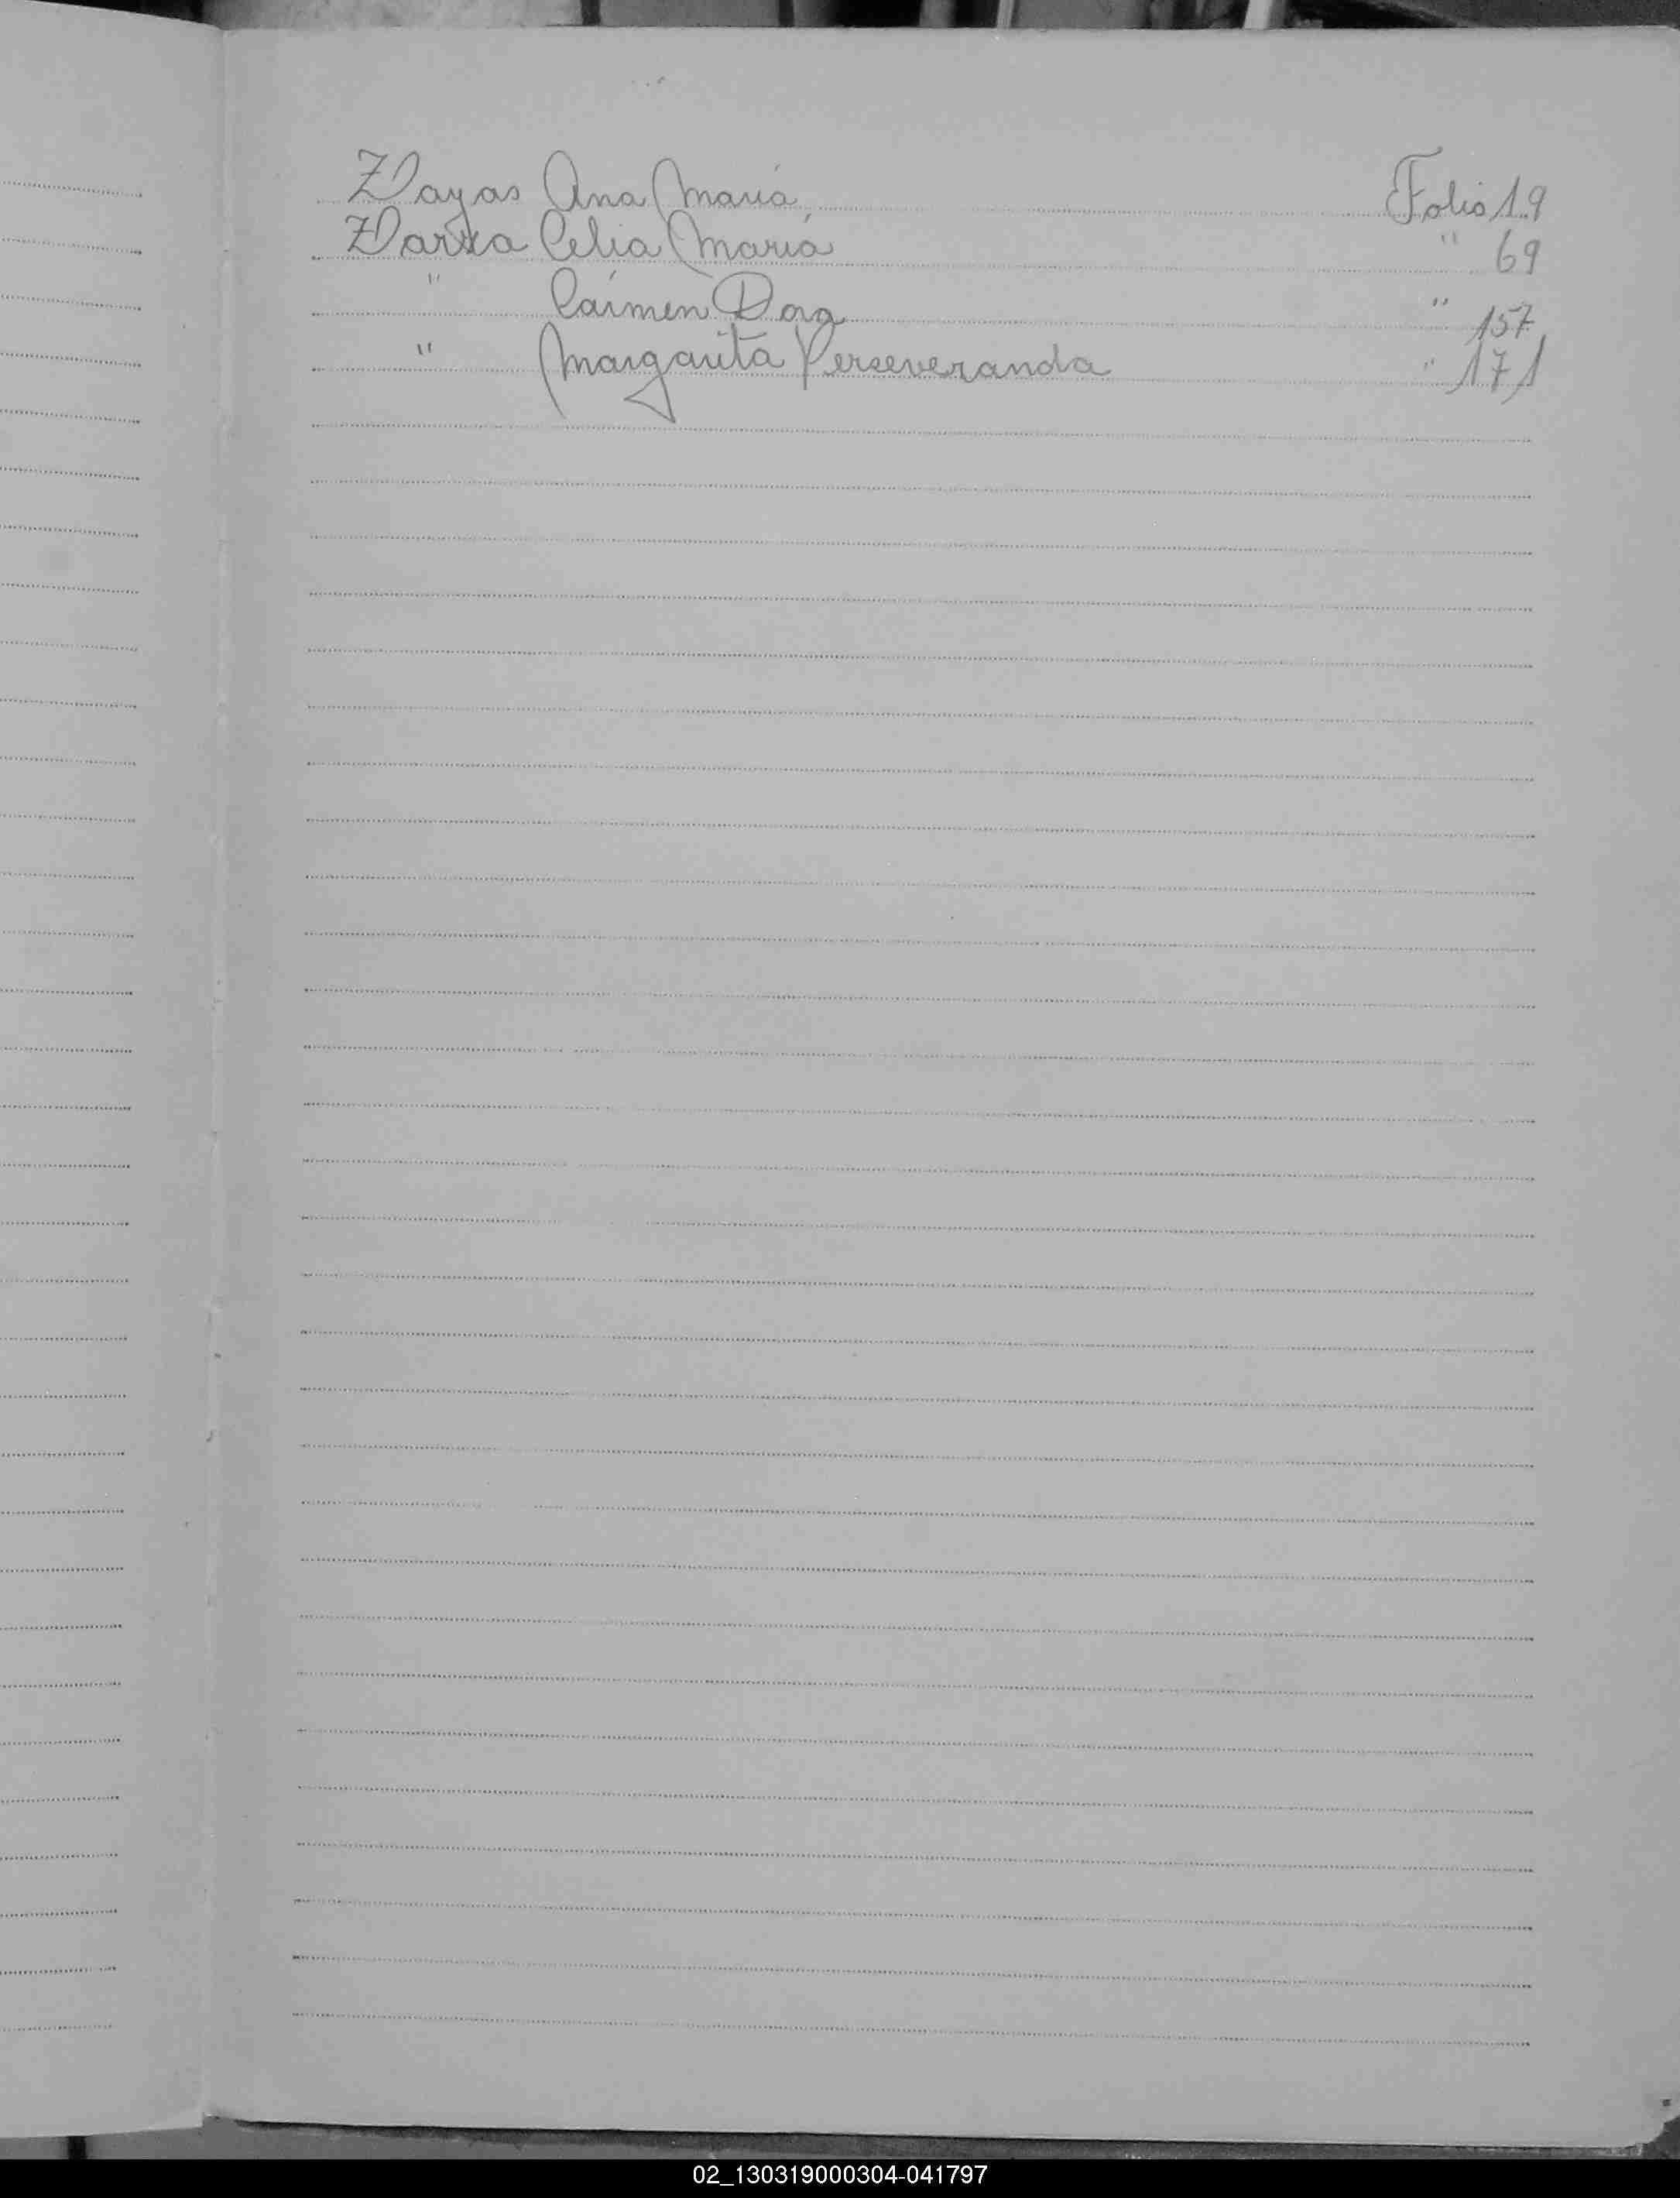 Zayas Ana María, Folio 19
Zarza Celia María " 69
" Carmen Dora " 157
" Margarita Perseveranda " 171
02_130319000304-041797